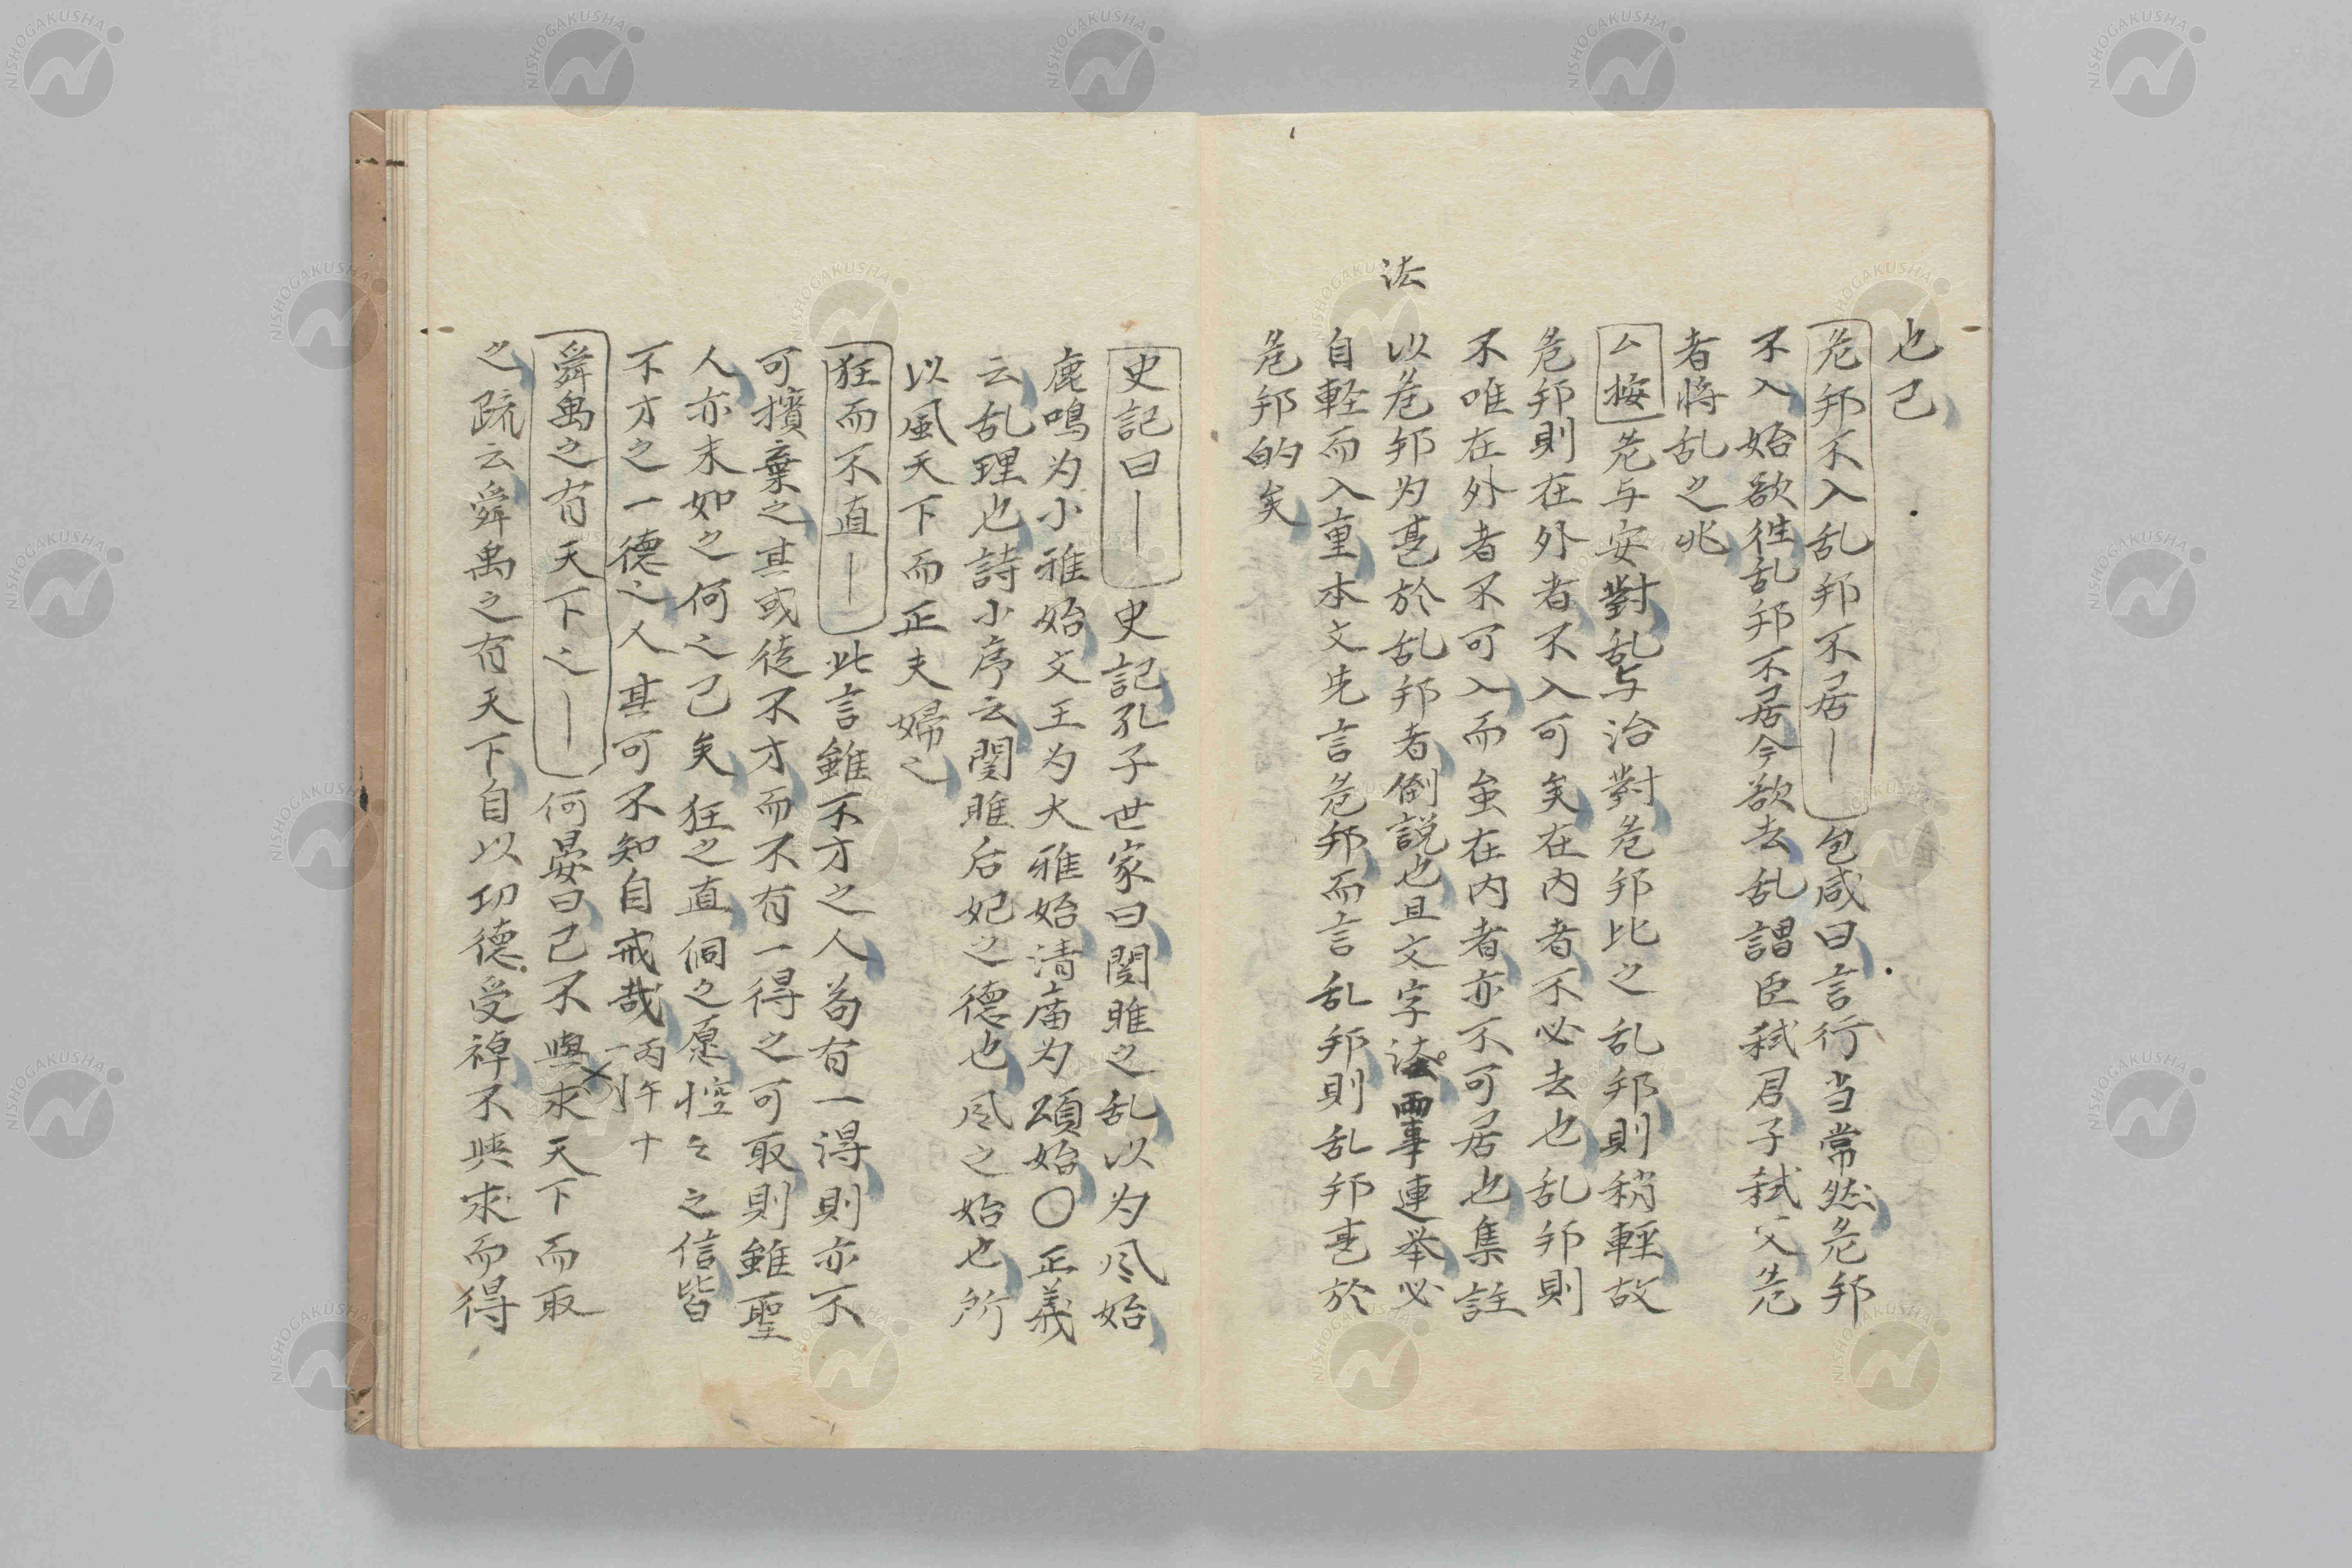 也已
危邦不入乱邦不居｜包咸曰言行当常然危邦
不入始欲徃乱邦不居今欲去乱謂臣弑君子弑父危
者将乱之兆
厶按危与安對乱与治對危邦比之乱邦則稍輕故
危邦則在外者不入可矣在内者不必去也乱邦則
不唯在外者不可入而虽在内者亦不可居也集註
法
以危邦为甚於乱邦者倒説也且文字法両事連挙必
自軽而入重本文先言危邦而言乱邦則乱邦甚於
危邦的矣
史記曰｜史記孔子世家曰関雎之乱以为风始
鹿鳴为小雅始文王为大雅始清庙为頌始〇正義
云乱理也詩小序云関雎后妃之德也风之始也所
以風天下而正夫婦也
狂而不直｜此言雖不才之人苟有一得則亦不
可擯棄之其或徒不才而不有一得之可取則雖聖
人亦末如之何已矣狂之直侗之愿悾々之信皆
不才之一德也人其可不知自戒哉丙午十
舜禹之有天下也｜何晏曰己不與求天下而取
之疏云舜禹之有天下自以功德受禅不與求而得
NISHOGAKUSHA